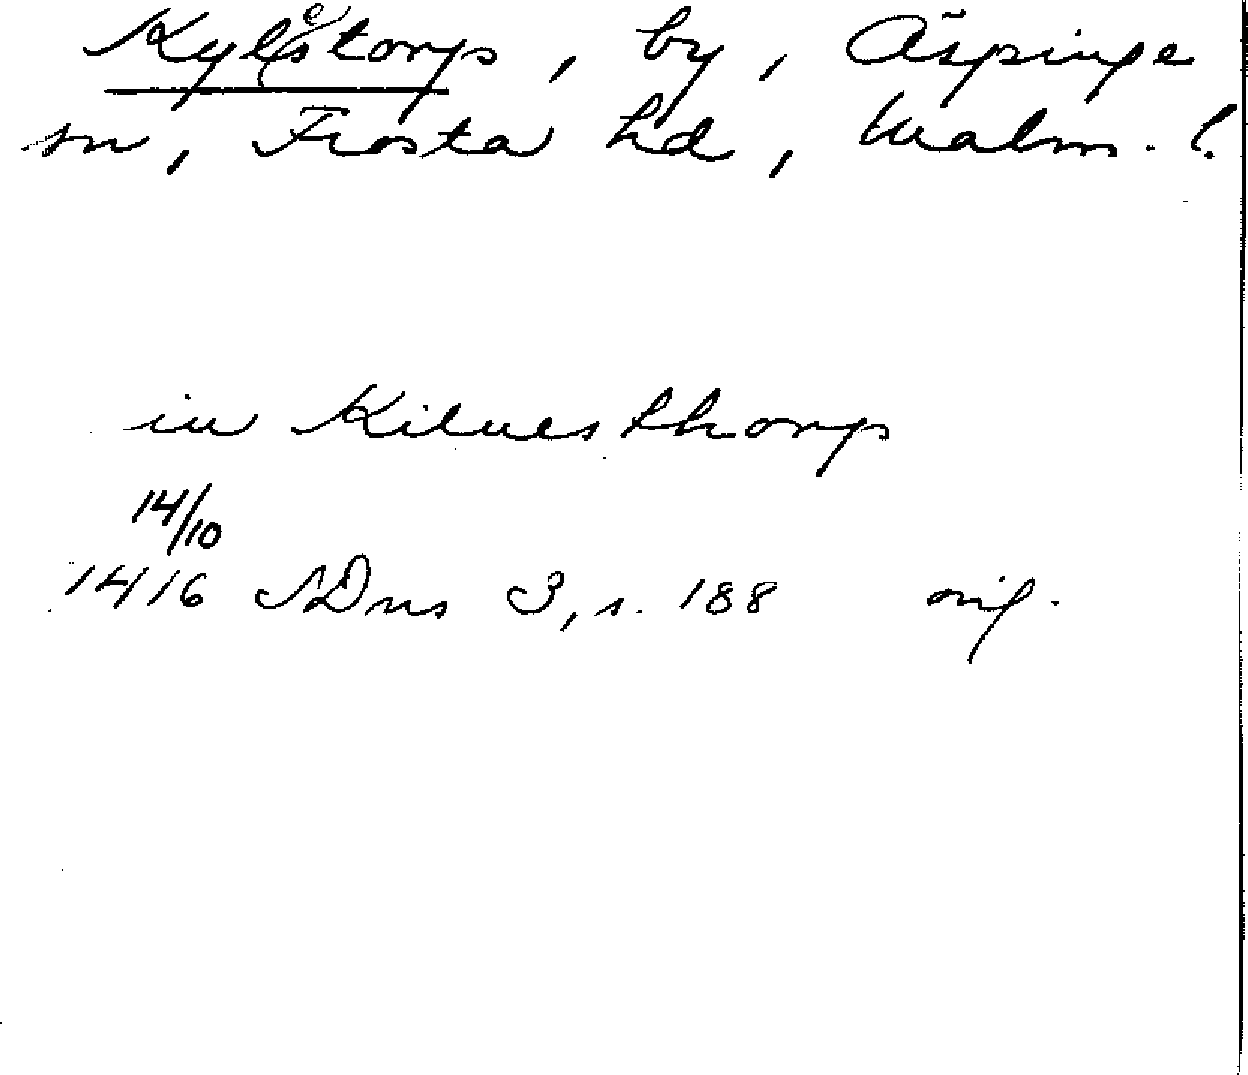 Kylestorp, by, Äspinge
sn, Frosta hd, Malm. l.
in Kilnesthorp
14/10
1416 SDns 3, s. 188 orig.